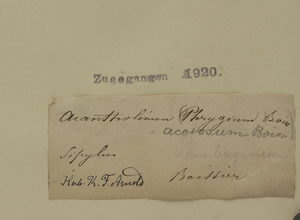 Zugegangen 1920.
Acantholimon Phrygium Bois
acerosum Boiss
Sipylus
Plumbagineae
Hab. K. F. Arnold
Boissier